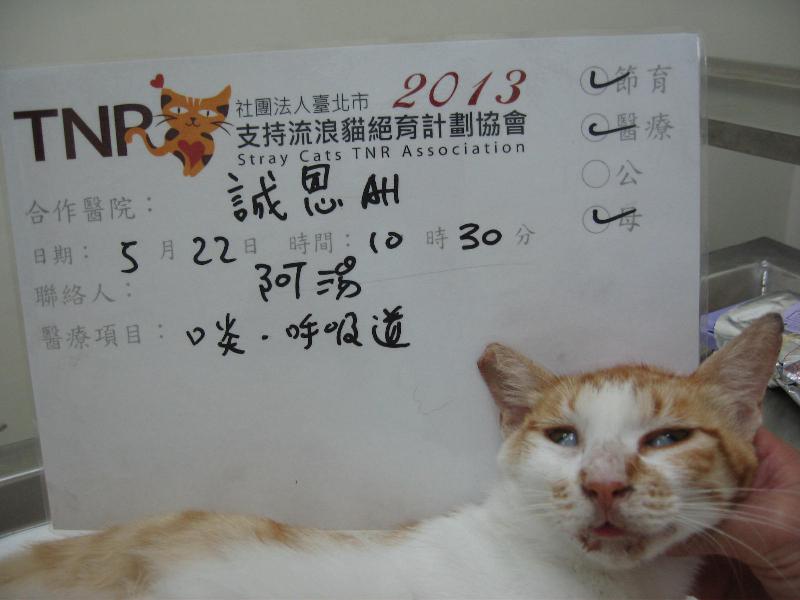 TNR
社團法人臺北市 2013
支持流浪貓絕育計劃協會
Stray Cats TNR Association
節育
醫療
公
母
合作醫院：誠恩AH
日期：5月22日 時間：10時30分
聯絡人：阿湯
醫療項目：口炎．呼吸道